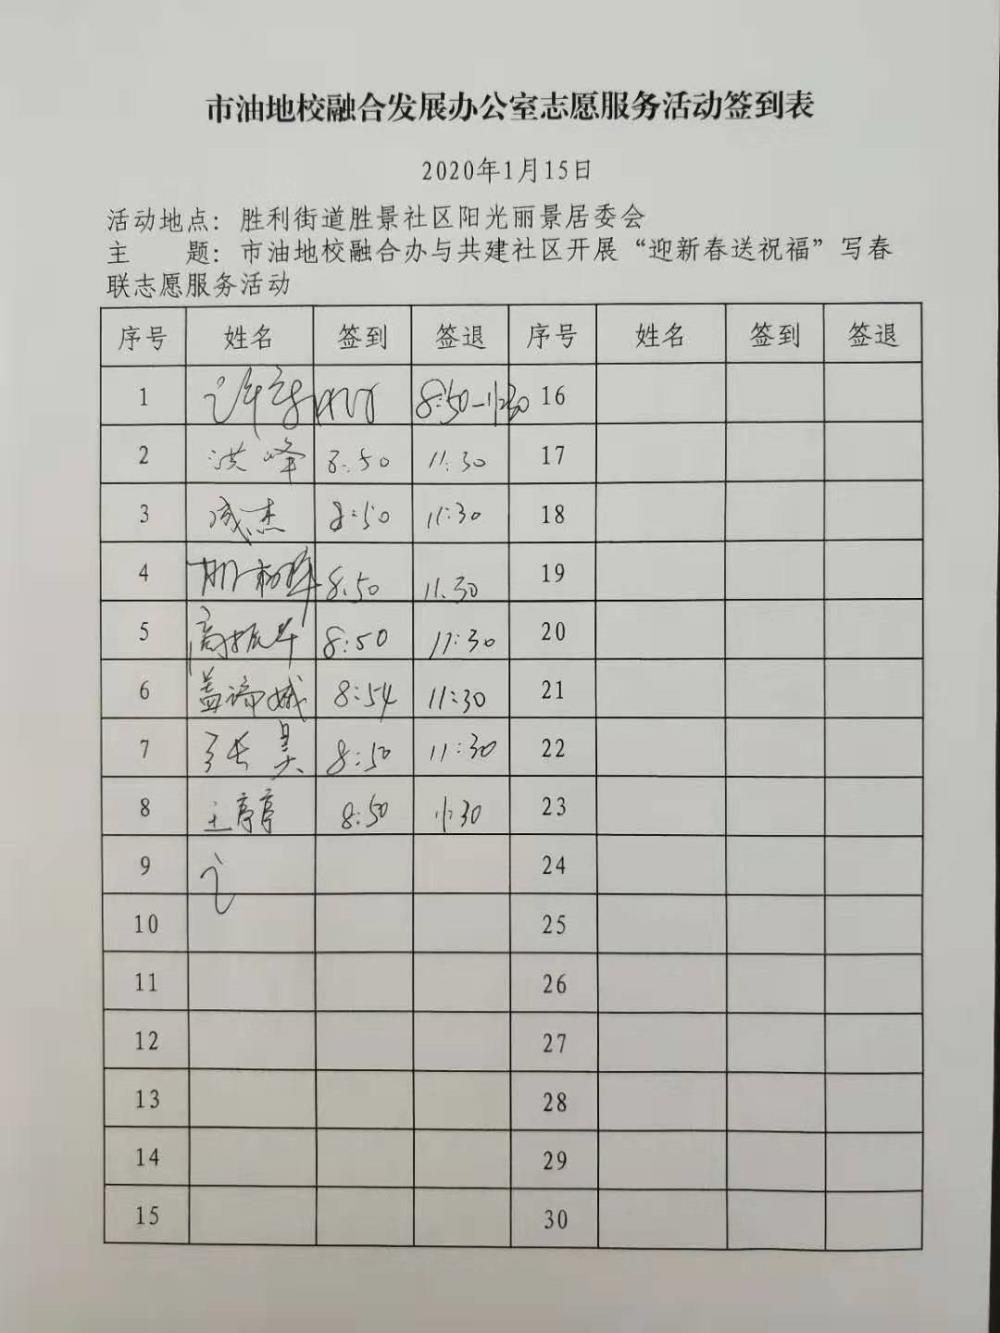 市油地校融合发展办公室志愿服务活动签到表
2020年1月15日
活动地点：胜利街道胜景社区阳光丽景居委会
主 题：市油地校融合办与共建社区开展“迎新春送祝福”写春
联志愿服务活动
序号 姓名 签到 签退 序号 姓名 签到 签退
1 8:50-11:30 16
2 洪峰 8:50 11:30 17
3 成杰 8:50 11:30 18
4 8:50 11:30 19
5 高振华 8:50 11:30 20
6 盖谛娥 8:54 11:30 21
7 张昊 8:50 11:30 22
8 王亭亭 8:50 11:30 23
9 24
10 25
11 26
12 27
13 28
14 29
15 30